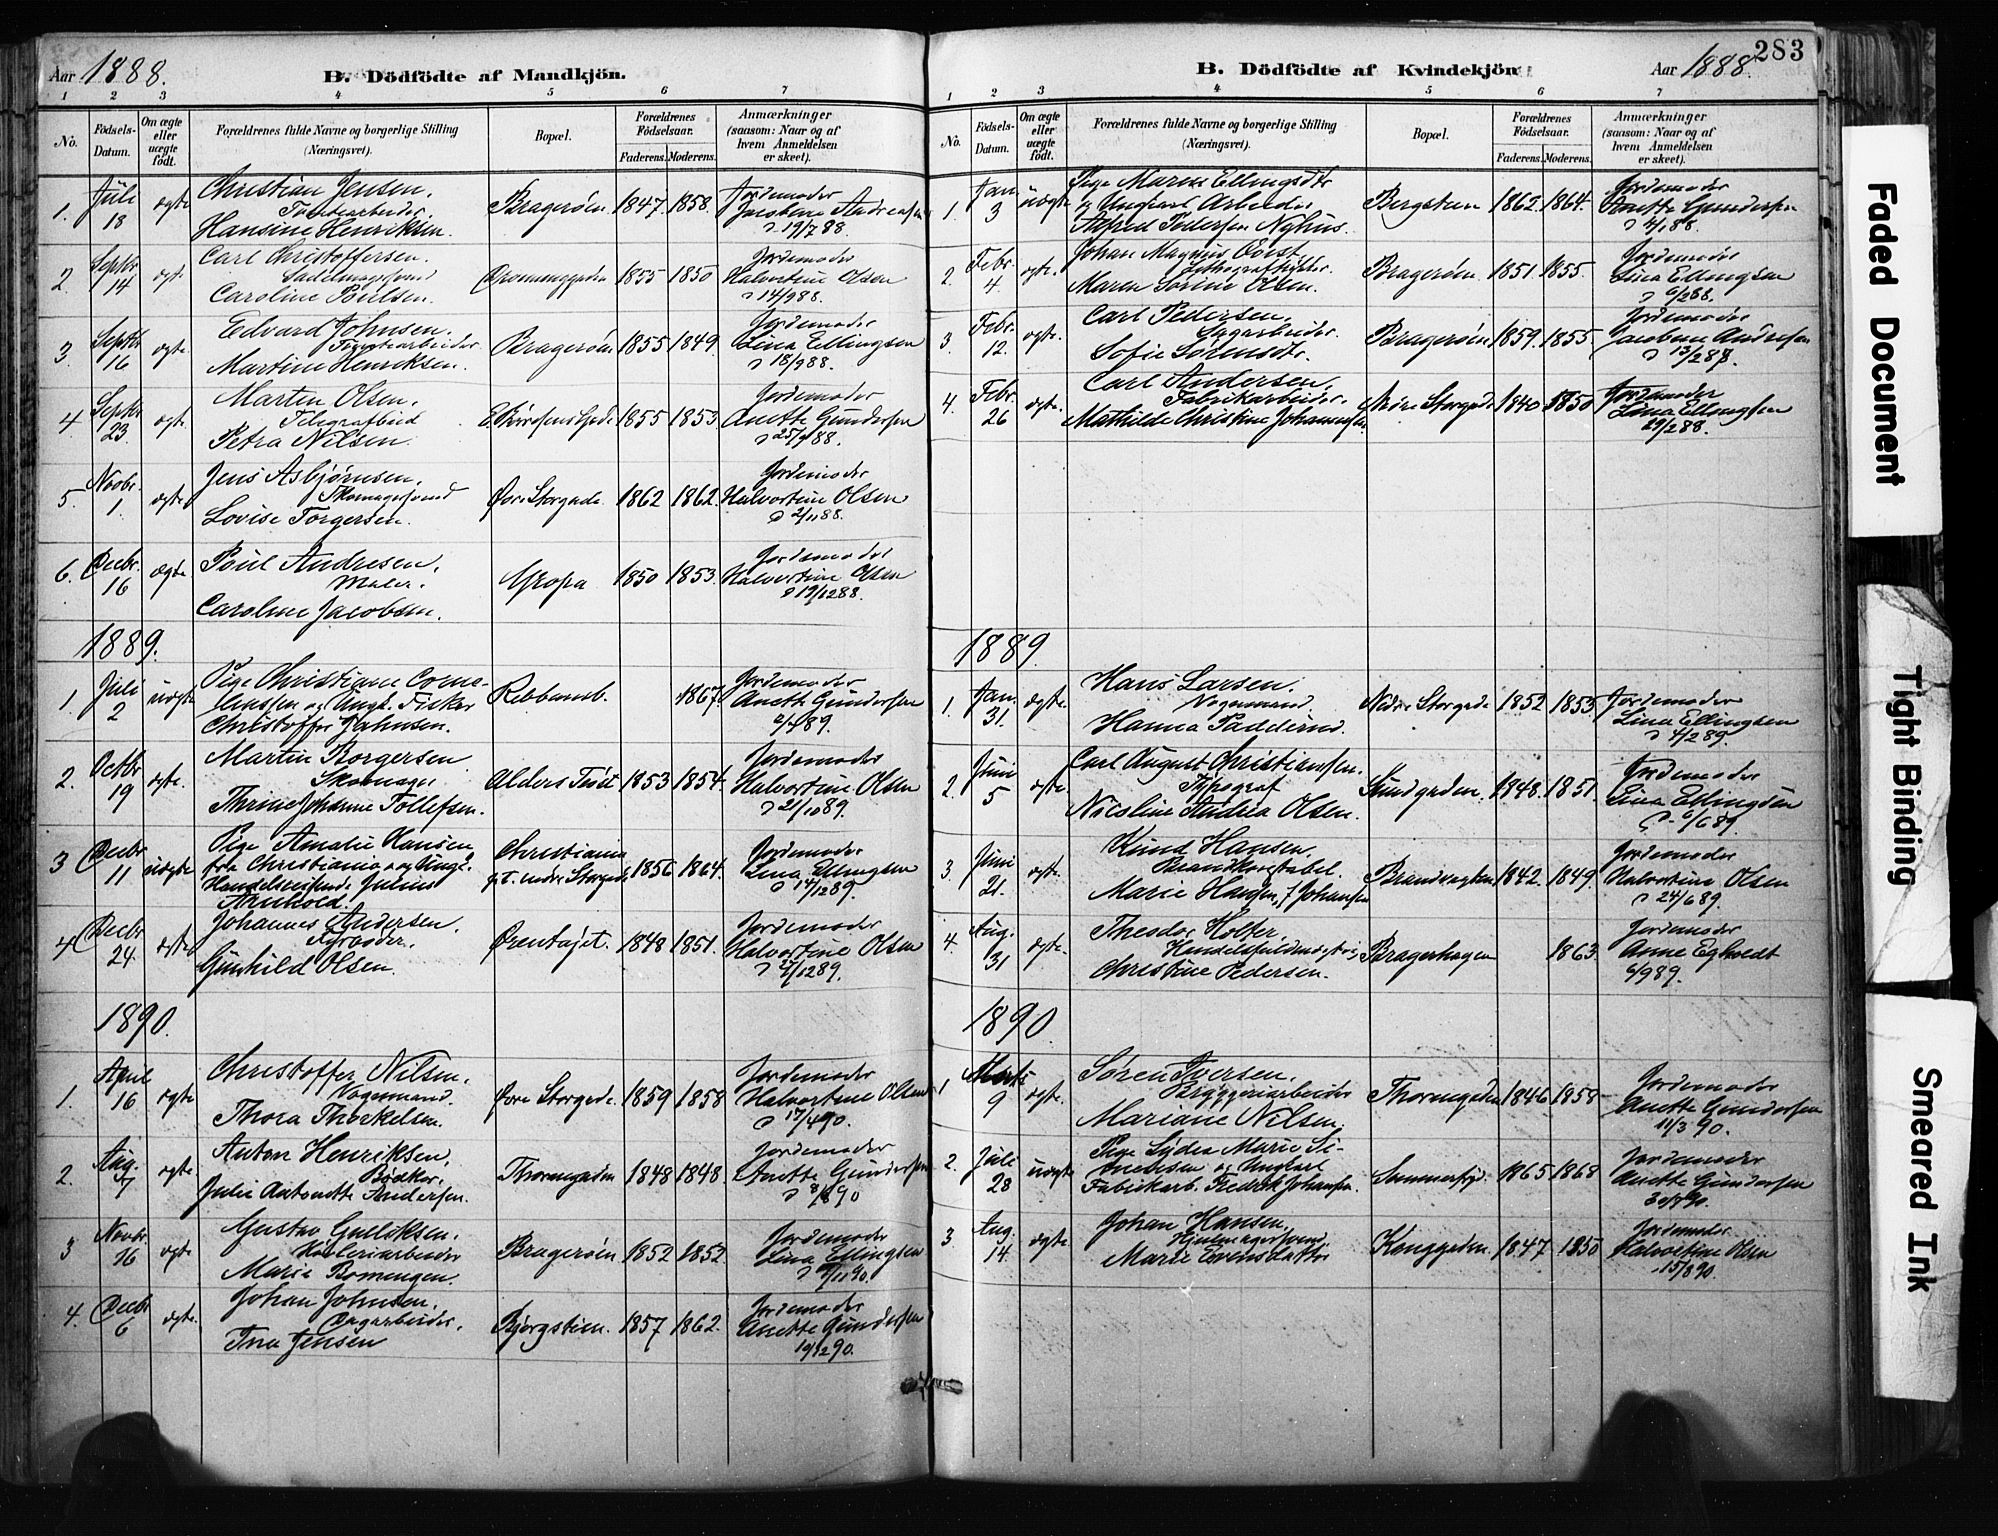 Aar 1888.
B. Dödfödte af Mandkjön.
1 2 3 4 5 6 7
No.
Födsels-Datum.
Om ægte eller uægte födt.
Forældrenes fulde Navne og borgerlige Stilling (Næringsvei).
Bopæl.
Forældrenes Födselsaar.
Faderens. Moderens.
Anmærkninger (saasom: Naar og af hvem Anmeldelsen er skeet).
1. Juli 18 ægte
Christian Jensen,
Hansine Henriksen.
Bragerøen 1847 1858.
Jordemoder
Jacobine Andresen
19/7 88
2 Septbr. 14 ægte
Carl Christoffersen.
Caroline Poulsen.
1855 1850
Jordemoder
Halvortine Olsen
14/9 88.
3. Septbr 16 ægte
Edvard Johnsen.
Tomtearbeider
Martine Henriksen.
Bragerøen 1855 1849.
Jordemoder
Lina Ellingsen
18/9 88.
4 Septbr 23 ægte
Martin Olsen,
Telegrafbud
Petra Nilsen.
1855 1853.
Jordemoder
Anette Gundersen
25/9 88.
5. Novbr. 1. ægte
Jens Asbjørnsen.
Skomagersvend
Lovise Torgersen.
Øvre Storgade. 1862 1862.
Jordemoder
Halvortine Olsen
2/11 88.
6. Decbr. 16 ægte
Poul Andresen,
Maler.
Caroline Jacobsen.
1850 1853.
Jordemoder
Halvortine Olsen
19/12 88.
1889.
1 Juli 2 uægte
Pige Christiane Corne-
liussen og Ungk. Fisker
Christoffer Jahnsen.
Ribbumb. 1867
Jordemoder
Anette Gundersen
2/7 89.
2. Octbr 19 ægte.
Martin Borgersen
Skomager
Thrine Johanne Tollefsen.
1853 1854.
Jordemoder
Halvortine Olsen
21/10 89.
3 Decbr 11 uægte
Pige Amalie Hansen
fra Christiania og Ungk.
Handelsreisende Julius
Christiania
p.t. nedre Storgade 1856 1864.
Jordemoder
Lina Ellingsen
14/12 89.
4 Decbr 24 ægte
Johannes Andersen.
Fyrbøder.
Gunhild Olsen.
Ørentøget. 1848 1851.
Jordemoder
Halvortine Olsen
27/12 89.
1890.
1. April 16 ægte
Christoffer Nilsen,
Vognmand.
Thora Thorkelsen.
Øvre Storgade. 1859 1858
Jordemoder
Halvortine Olsen
17/4 90.
2. Aug. 7 ægte.
Anton Henriksen,
Bødker.
Julie Antonette Andersen.
Thornegaden 1848 1848.
Jordemoder
Anette Gundersen
8/8 90
3 Novbr. 16 ægte
Gustav Gulliksen.
Høvleriarbeider
Marie Bomengen.
Bragerøen 1852 1852
Jordemoder
Lina Ellingsen
4. Decbr 6 ægte.
Johan Johnsen,
Sagarbeider.
Ina Jensen
Bjergstien. 1857 1862.
Jordemoder
Anette Gundersen
10/12 90.
B. Dödfödte af Kvindekjön
Aar 1888. 283
1 2 3 4 5 6 7
No.
Födsels-Datum.
Om ægte eller uægte födt.
Forældrenes fulde Navne og borgerlige Stilling (Næringsvei).
Bopæl.
Forældrenes Födselsaar.
Faderens. Moderens.
Anmærkninger (saasom: Naar og af hvem Anmeldelsen er skeet).
1. Jan. 3 uægte
Pige Maren Ellingsdtr
og Ungkarl Arbeider
Alfred Pedersen Nyhus.
Bergstien 1862. 1864.
Jordemoder
Anette Gundersen
4/1 88.
2 Febr. 4 ægte.
Johan Magnus Qvist,
Maren Sørine Olsen.
Bragerøen. 1851. 1855.
Jordemoder
Lina Ellingsen
6/2 88.
3. Febr. 12. ægte.
Carl Pedersen,
Sagarbeider.
Sofie Sørensdtr.
Bragerøen 1859. 1855.
Jordemoder
Jacobine Andresen
13/2 88.
4. Febr. 26 ægte.
Carl Andersen,
Fabrikarbeider.
Mathilde Christine Johannesen.
Nedre Storgade 1840 1850
Jordemoder
Lina Ellingsen
29/2 88.
1889
1. Jan. 31. ægte.
Hans Larsen.
Vognmand.
Hanna Paddernd.
Nedre Storgade 1852 1853
Jordemoder
Lina Ellingsen
4/2 89.
2. Juni 5 ægte.
Carl August Christiansen.
Typograf
Nicoline Andrea Olsen.
Sundgaden. 1848. 1851.
Jordemoder
Lina Ellingsen
6/6 89.
3 Juni 21. ægte.
Knud Hansen.
Brandkonstabel.
Marie Hansen, f. Johansen
Brandvagten 1842. 1849.
Jordemoder
Halvortine Olsen
24/6 89.
4. Aug. 31 ægte.
Theodor Holter,
Handelsfuldmægtig
Christine Pedersen.
Bragerhagen 1863.
Jordemoder
Anne Egholdt
6/9 89.
1890
1 Marts 9 ægte.
Søren Iversen.
Bryggeriarbeider
Mariane Nilsen.
Thornegaden 1846 1858
Jordemoder
Anette Gundersen
11/3 90.
2. Juli 28 uægte
Pige Lydea Marie Si-
monsen og Ungkarl
Fabrikarb. Fredrik Johansen.
Sommerfryd. 1865 1868
Jordemoder
Anette Gundersen
30/7 90.
3 Aug. 14. ægte.
Johan Hansen,
Hjulmagersvend.
Marie Evensdatter
Konggaden. 1847. 1850
Jordemoder
Halvortine Olsen
15/8 90.
Faded Document
Tight Binding
Smeared Ink